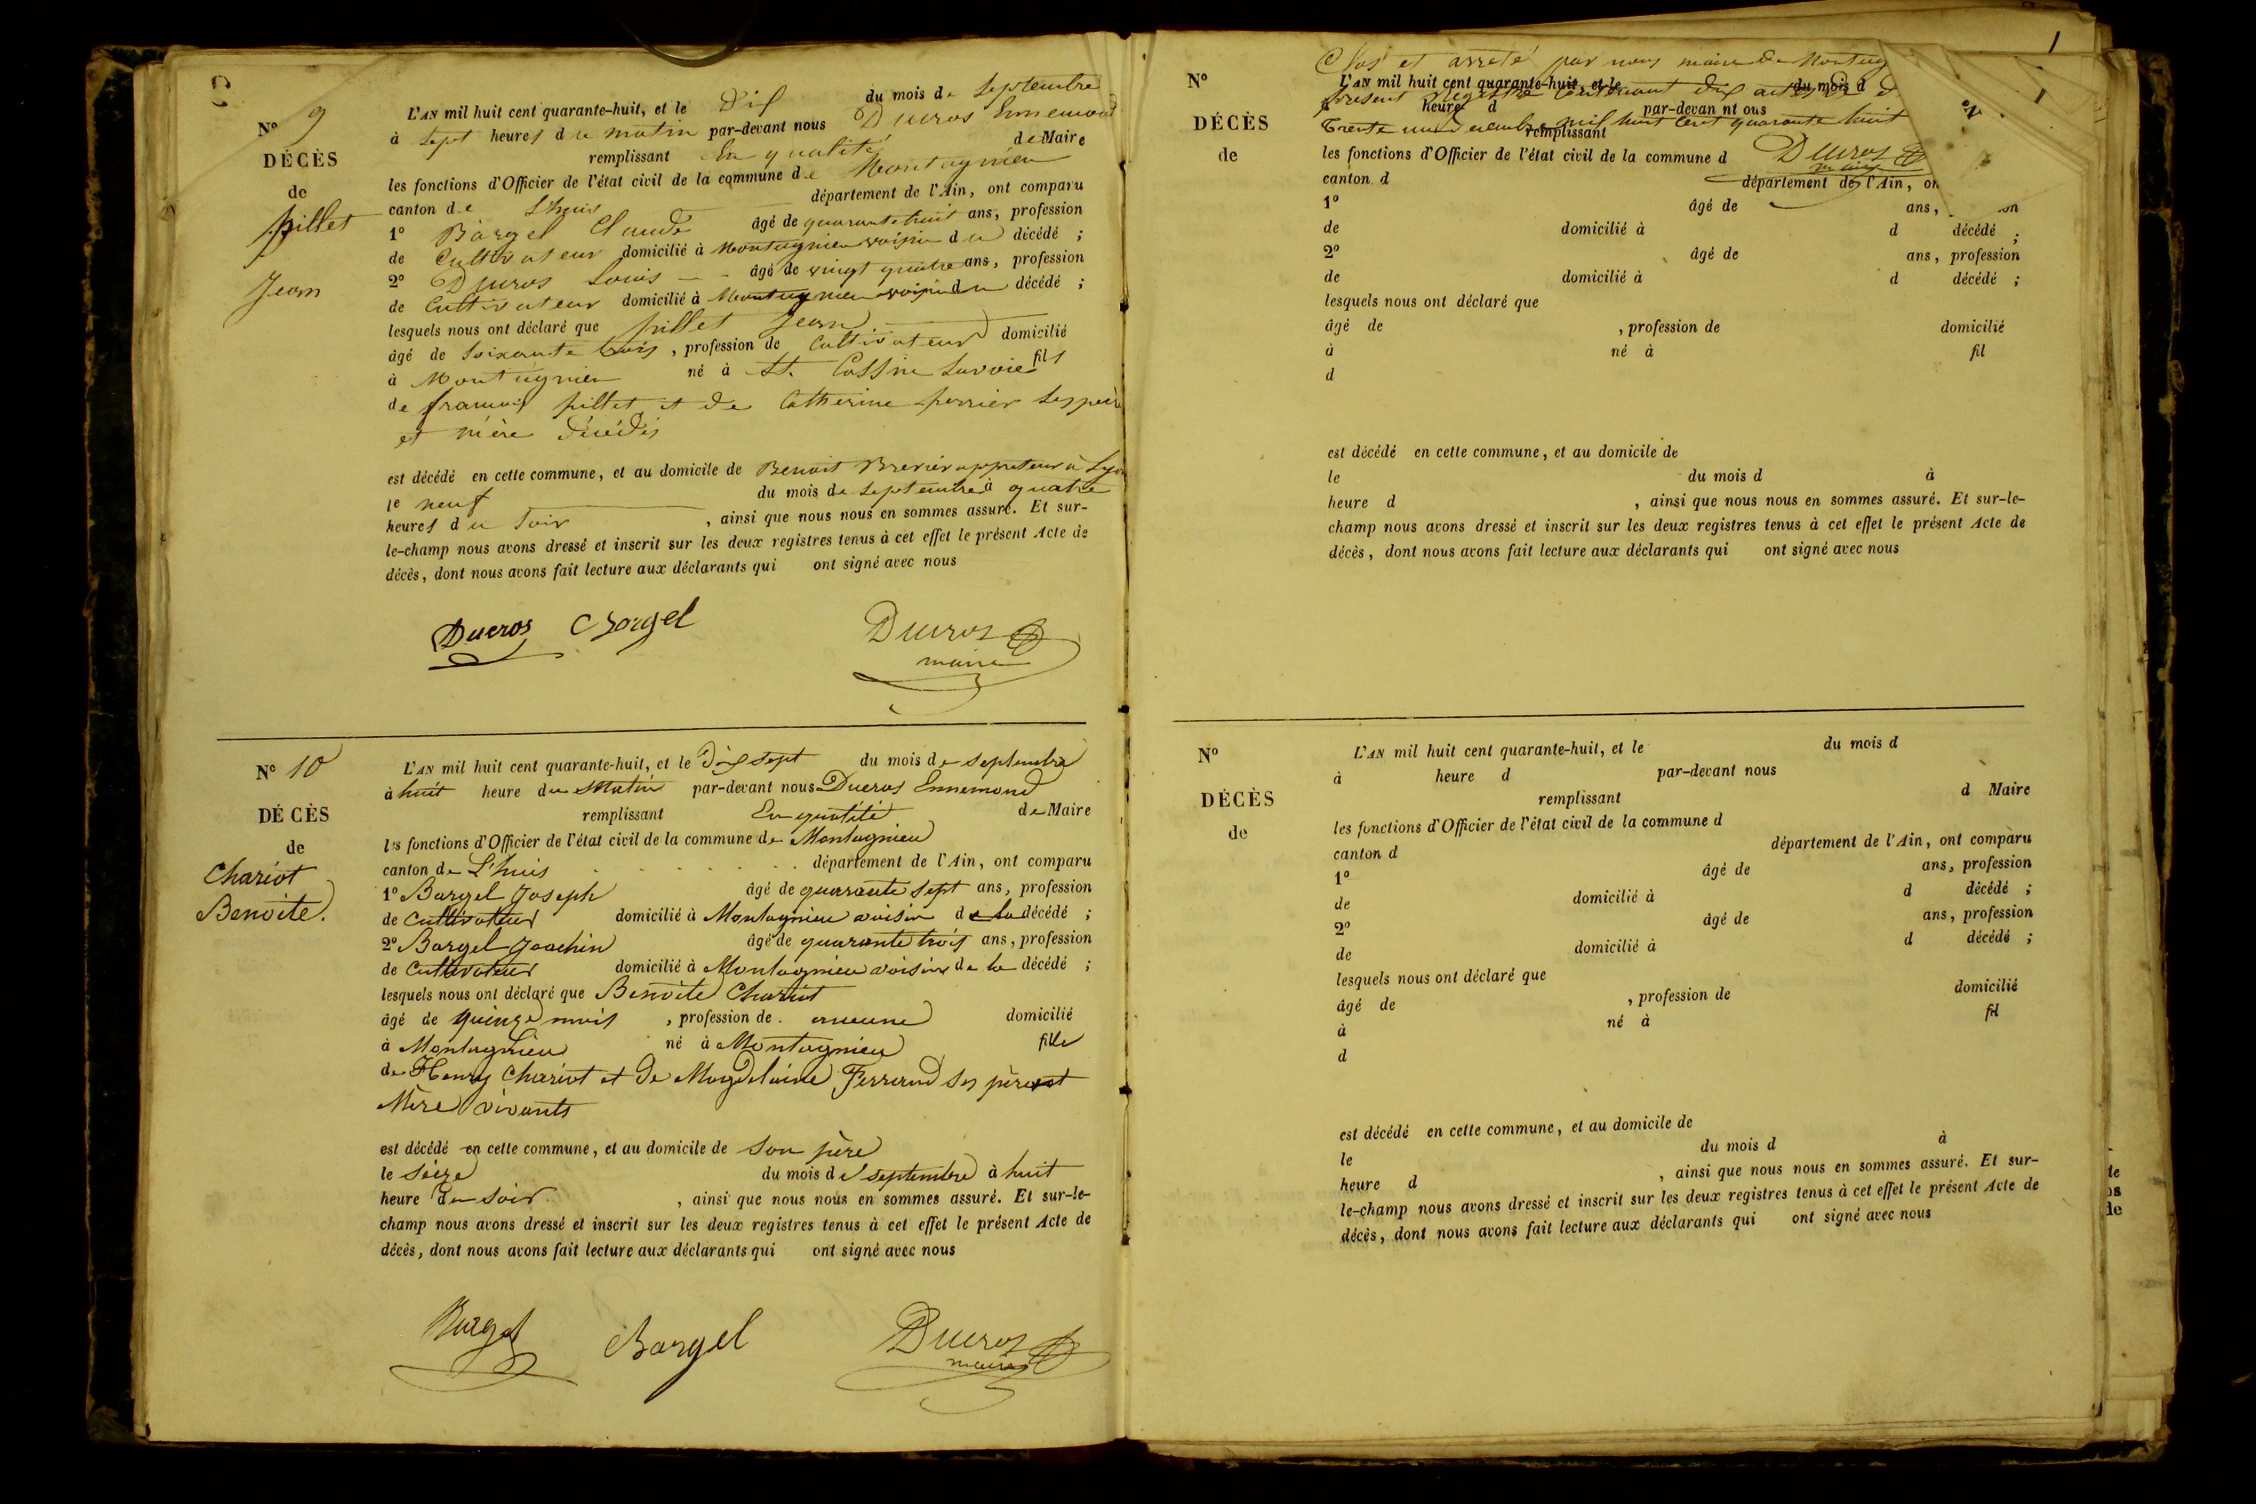 Nº 9
DÉCÈS
de
pillet
Jean
L'AN mil huit cent quarante-huit, et le dix du mois de septembre
à sept heures du matin par-devant nous Ducros Ennemond
remplissant En qualité de Maire
les fonctions d'Officier de l'état civil de la commune de Montagnieu
canton de Lhuis département de l'Ain, ont comparu
1º Bargel Claude âgé de quarante huit ans, profession
de Cultivateur domicilié à Montagnieu voisin du décédé ;
2º Ducros Louis âgé de vingt quatre ans, profession
de Cultivateur domicilié à Montagnieu voisin du décédé ;
lesquels nous ont déclaré que pillet Jean
âgé de Soixante trois, profession de Cultivateur domicilié
à Montagnieu né à St. Cassin Savoie fils
de francois pillet et de Catherine perrier ses père
et mère décédés
est décédé en cette commune, et au domicile de Benoit appreteur à Lyon
le neuf du mois de septembre à quatre
heures du Soir, ainsi que nous nous en sommes assuré. Et sur-
le-champ nous avons dressé et inscrit sur les deux registres tenus à cet effet le présent Acte de
décès, dont nous avons fait lecture aux déclarants qui ont signé avec nous
Ducros C Bargel Ducros
maire
Nº 10
DÉCÈS
de
Chariot
Benoite.
L'AN mil huit cent quarante-huit, et le dix sept du mois de septembre
à huit heure du Matin par-devant nous Ducros Ennemond
remplissant En quatité de Maire
les fonctions d'Officier de l'état civil de la commune de Montagnieu
canton de L'huis département de l'Ain, ont comparu
1º Bargel Joseph âgé de quarante sept ans, profession
de Cultivateur domicilié à Montagnieu voisin de la décédé ;
2º Bargel Joachin âgé de quarante trois ans, profession
de Cultivateur domicilié à Montagnieu voisins de la décédé ;
lesquels nous ont déclaré que Benoite Chariot
âgé de quinze mois, profession de aucune domicilié
à Montagnieu né à Montagnieu fille
de Henry Chariot et de Magdelaine Ferrand ses père et
Mère vivants
est décédé en cette commune, et au domicile de son père
le seize du mois de septembre à huit
heure du soir, ainsi que nous nous en sommes assuré. Et sur-le-
champ nous avons dressé et inscrit sur les deux registres tenus à cet effet le présent Acte de
décès, dont nous avons fait lecture aux déclarants qui ont signé avec nous
Bargel Bargel Ducros
maire
Clos et arreté par nous maire de Montag
Nº
L'AN mil huit cent quarante-huit, et le du mois d
present Registre Contenant dix actes de d
heure d par-devan nt ous
DÉCÈS
Trente un Decembre mil huit Cent quarante huit
remplissant
de
les fonctions d'Officier de l'état civil de la commune d
Ducros
maire
canton d département de l'Ain, on
1º âgé de ans,
de domicilié à d décédé ;
2º âgé de ans, profession
de domicilié à d décédé ;
lesquels nous ont déclaré que
âgé de , profession de domicilié
à né à fil
d
est décédé en cette commune, et au domicile de
le du mois d à
heure d , ainsi que nous nous en sommes assuré. Et sur-le-
champ nous avons dressé et inscrit sur les deux registres tenus à cet effet le présent Acte de
décès, dont nous avons fait lecture aux déclarants qui ont signé avec nous
Nº
DÉCÈS
de
L'AN mil huit cent quarante-huit, et le du mois d
à heure d par-devant nous
remplissant d Maire
les fonctions d'Officier de l'état civil de la commune d
canton d département de l'Ain, ont comparu
1º âgé de ans, profession
de domicilié à d décédé ;
2º âgé de ans, profession
de domicilié à d décédé ;
lesquels nous ont déclaré que
âgé de , profession de domicilié
à né à fil
d
est décédé en cette commune, et au domicile de
le du mois d à
heure d , ainsi que nous nous en sommes assuré. Et sur-
le-champ nous avons dressé et inscrit sur les deux registres tenus à cet effet le présent Acte de
décès, dont nous avons fait lecture aux déclarants qui ont signé avec nous